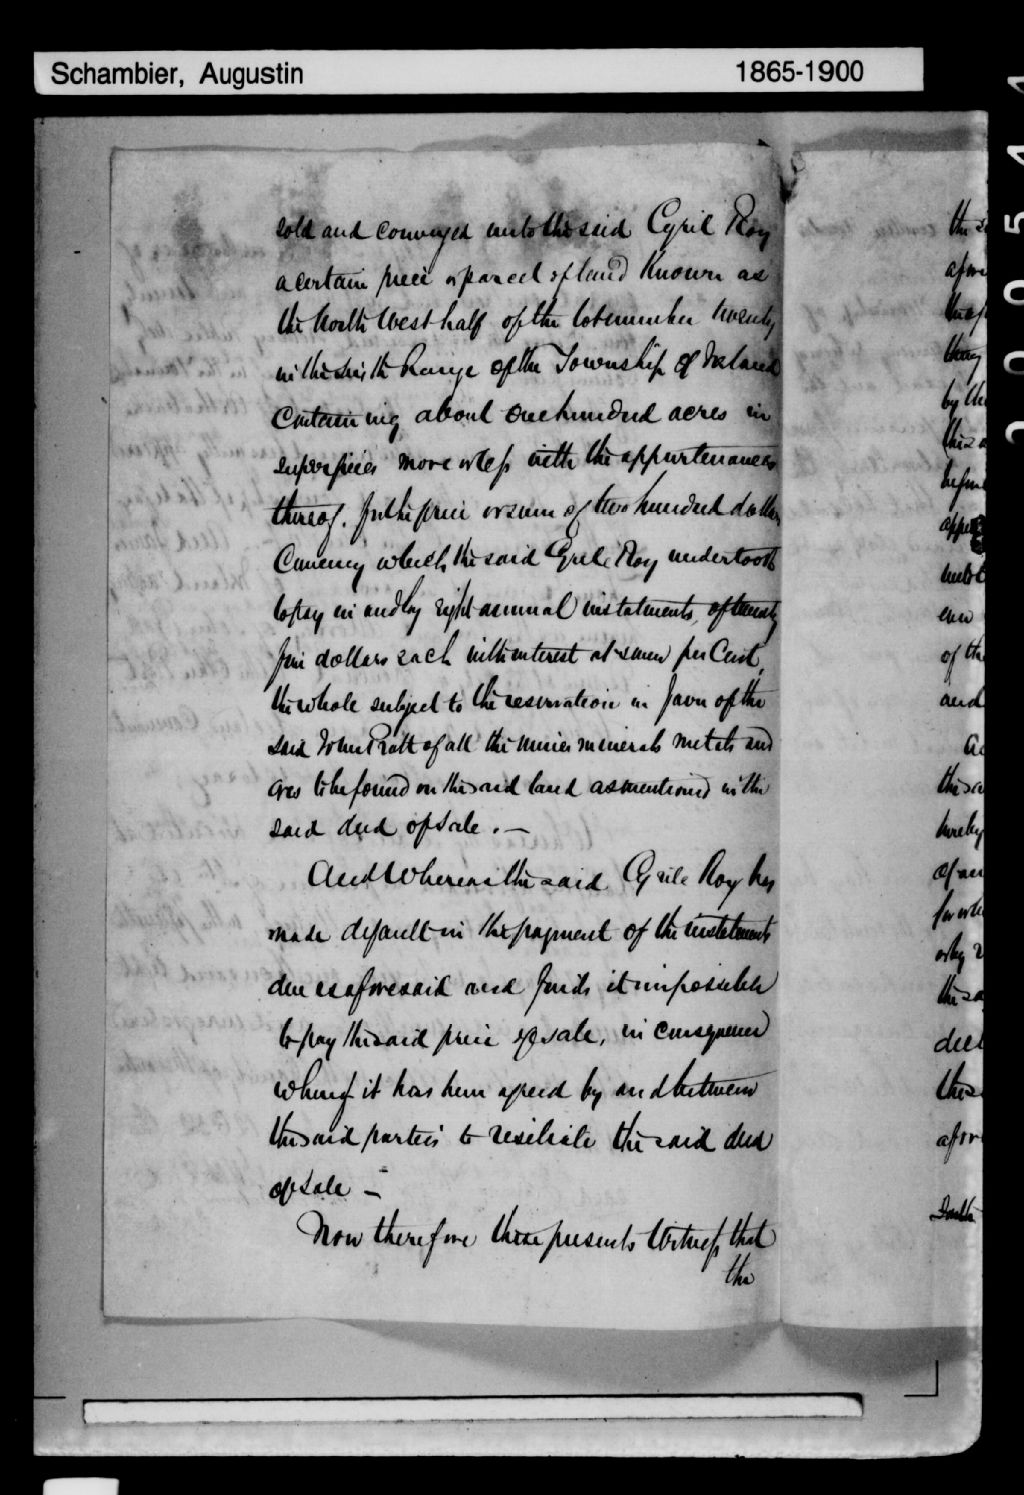 Schambier, Augustin 1865-1900
sold and conveyed unto the said Cyril Roy
a certain piece or parcel of land Known as
the North West half of the lot number twenty
in the sixth Range of the Township of Ireland
Containing about one hundred acres in
superficies more or less with the appurtenances
thereof. for the price or sum of two hundred dollars
Currency which the said Cyrile Roy undertook
to pay in and by eight annual instalments, of twenty
five dollars each with interest at seven per Cent,
the whole subject to the reservation in favor of the
said John Pratt of all the mines minerals metals and
ores to be found on the said land as mentioned in the
said deed of sale. —
And Whereas the said Cyrile Roy has
made default in the payment of the instalments
due as aforesaid and finds it impossible
to pay the said price of sale, in consequence
whereof it has been agreed by and between
the said parties to resiliate the said deed
of sale —
Now therefore these presents Witness that
the
the
by the
of the
and
hereby